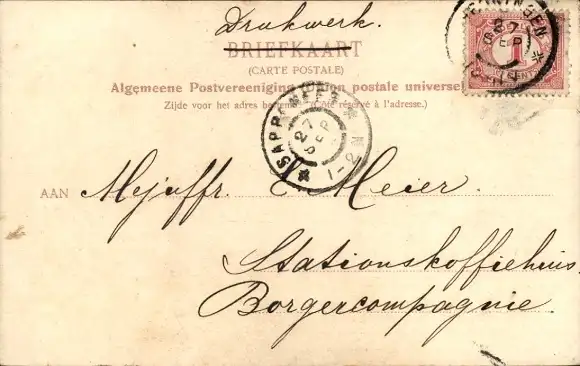 Drukwerk.
BRIEFKAART
(CARTE POSTALE)
Algemeene Postvereeniging (Union postale universelle
Zijde voor het adres bestemd. (Côté réservé à l'adresse.)
SAPPEMEER
27 SEP
1-2 N
27 SEP
1
CENT
AAN Mejuffr. E Meier.
Stationskoffiehuis
Borgercompagnie.